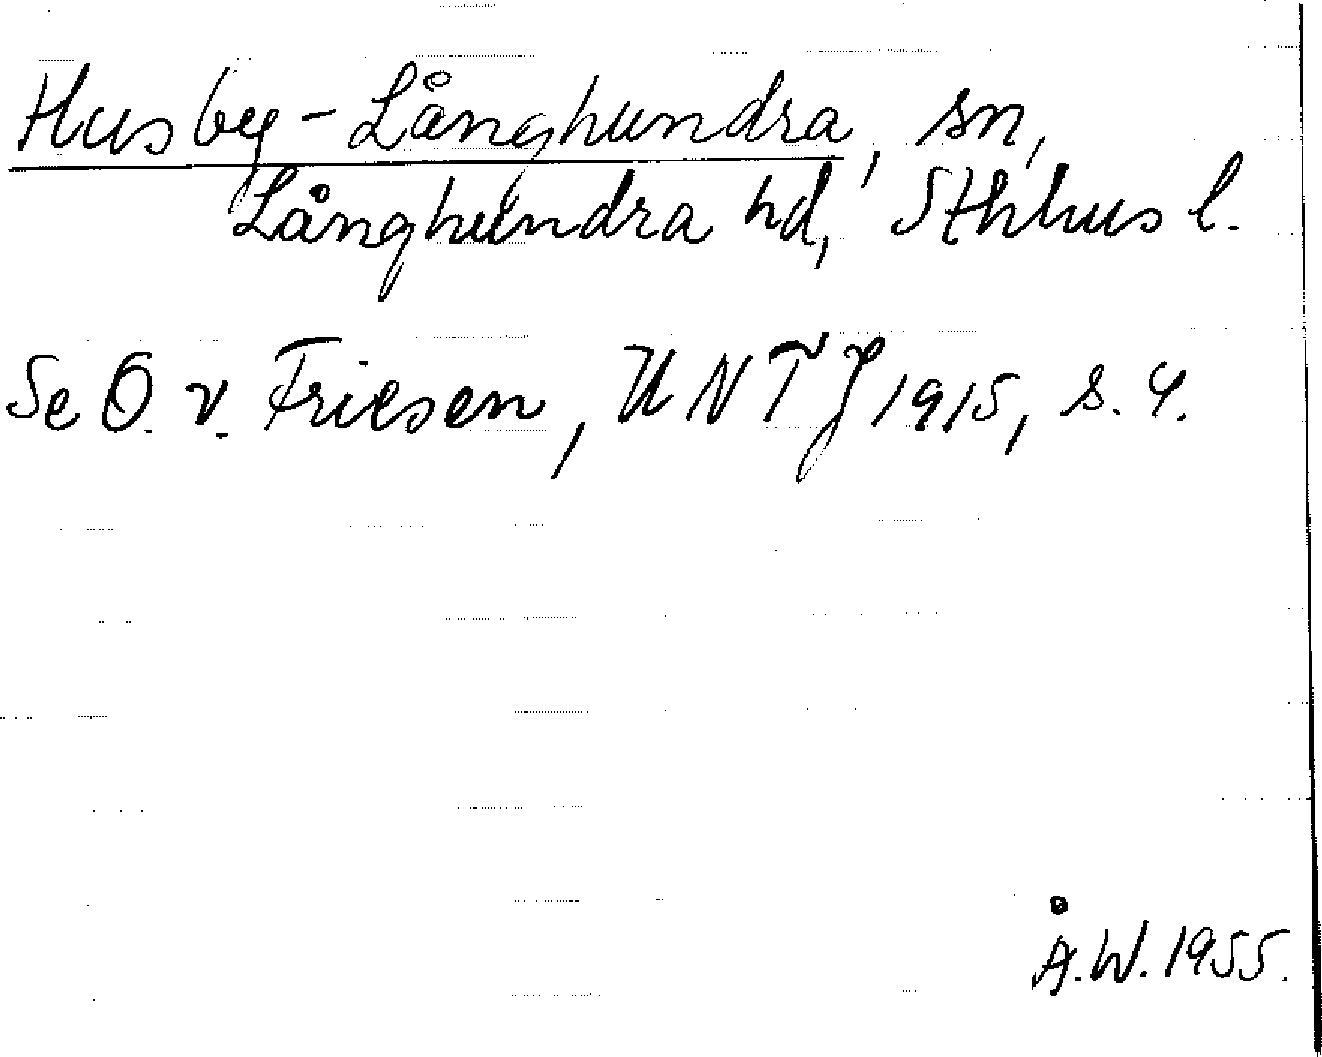 Husby-Långhundra, sn,
Långhundra hd, Sthlms l.
Se O. v. Friesen, UNTJ 1915, s. 4.
Å.W. 1955.